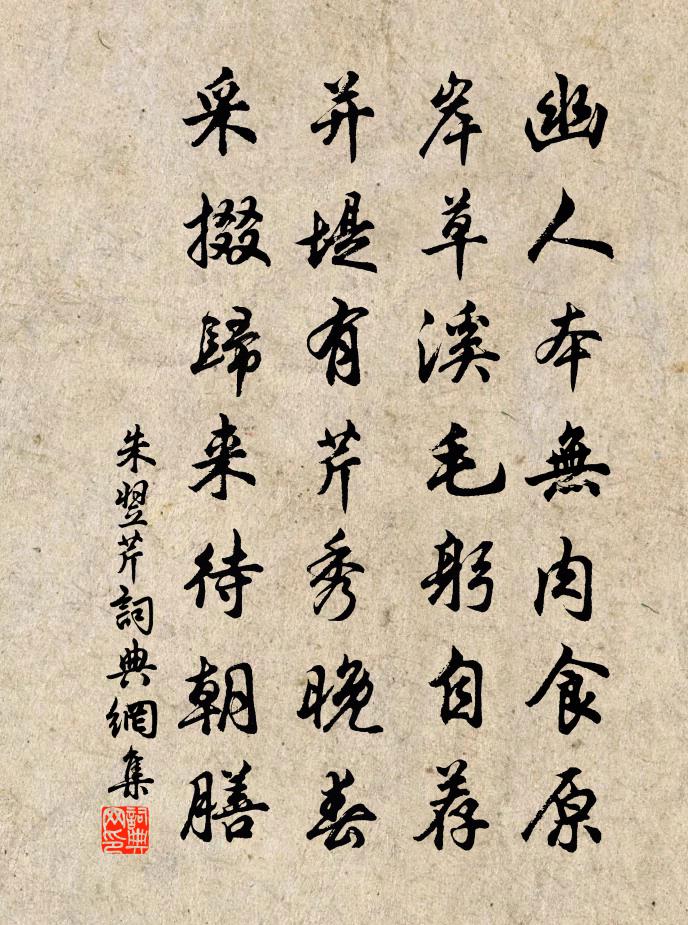 幽人本無肉食原
岸草溪毛躬自荐
并堤有芹秀晚春
采掇歸来待朝膳
朱翌芹詞典網集
詞典網印